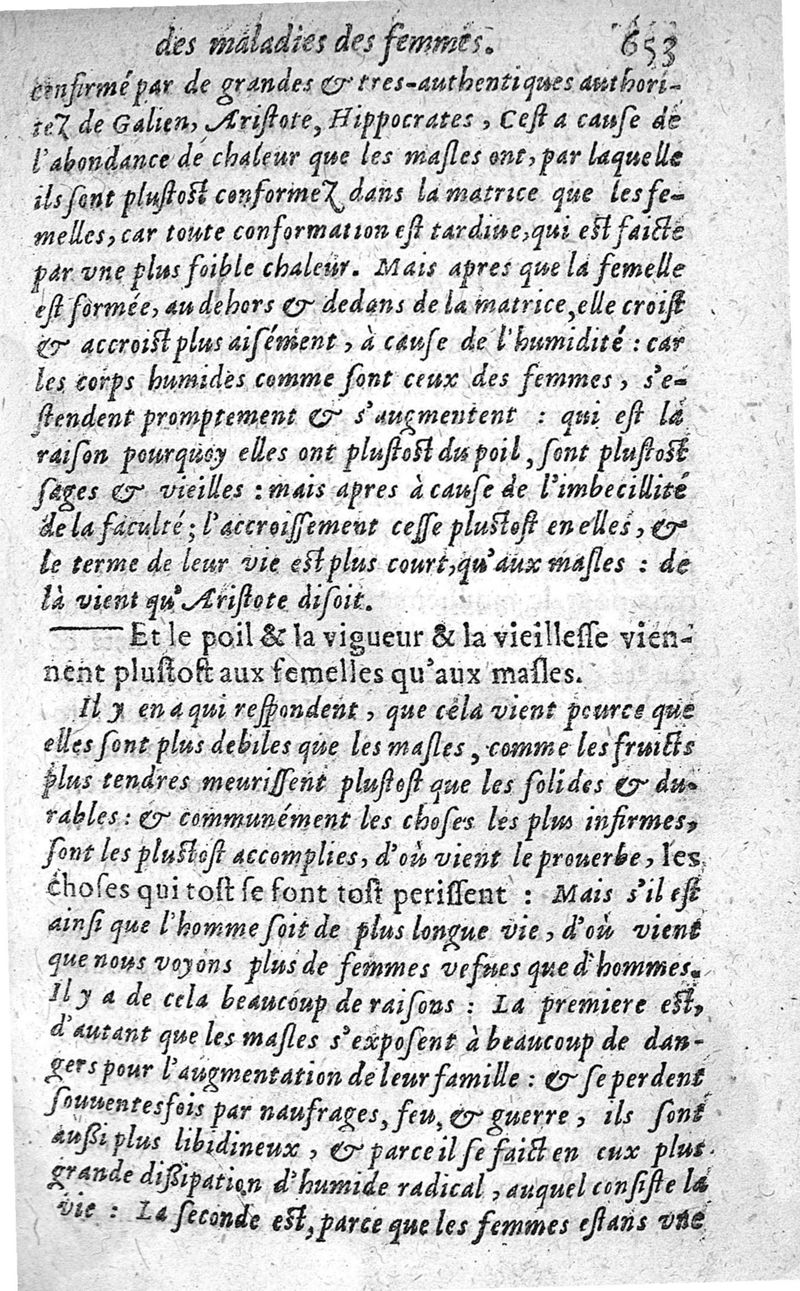 des maladies des femmes. 653
confirmé par de grandes & tres-authentiques authori-
teZ de Galien, Aristote, Hippocrates, Cest a cause de
l'abondance de chaleur que les masles ont, par laquelle
ils sont plustost conformeZ dans la matrice que les fe-
melles, car toute conformation est tardiue, qui est faicte
par vne plus foible chaleur. Mais apres que la femelle
est formée, au dehors & dedans de la matrice, elle croist
& accroist plus aisément, à cause de l'humidité : car
les corps humides comme sont ceux des femmes, s'e-
stendent promptement & s'augmentent : qui est la
raison pourquoy elles ont plustost du poil, sont plustost
sages & vieilles : mais apres à cause de l'imbecillité
de la faculté; l'accroissement cesse plustost en elles, &
le terme de leur vie est plus court, qu'aux masles : de
là vient qu'Aristote disoit.
Et le poil & la vigueur & la vieillesse vien-
nent plustost aux femelles qu'aux masles.
Il y en a qui respondent, que cela vient pource que
elles sont plus debiles que les masles, comme les fruicts
plus tendres meurissent plustost que les solides & du-
rables : & communément les choses les plus infirmes,
sont les plustost accomplies, d'où vient le prouerbe, les
choses qui tost se font tost perissent : Mais s'il est
ainsi que l'homme soit de plus longue vie, d'où vient
que nous voyons plus de femmes vefues que d'hommes.
Il y a de cela beaucoup de raisons : La premiere est,
d'autant que les masles s'exposent à beaucoup de dan-
gers pour l'augmentation de leur famille : & se perdent
souuentesfois par naufrages, feu, & guerre, ils sont
aussi plus libidineux, & parce il se faict en eux plus
grande dissipation d'humide radical, auquel consiste la
vie : La seconde est, parce que les femmes estans vne